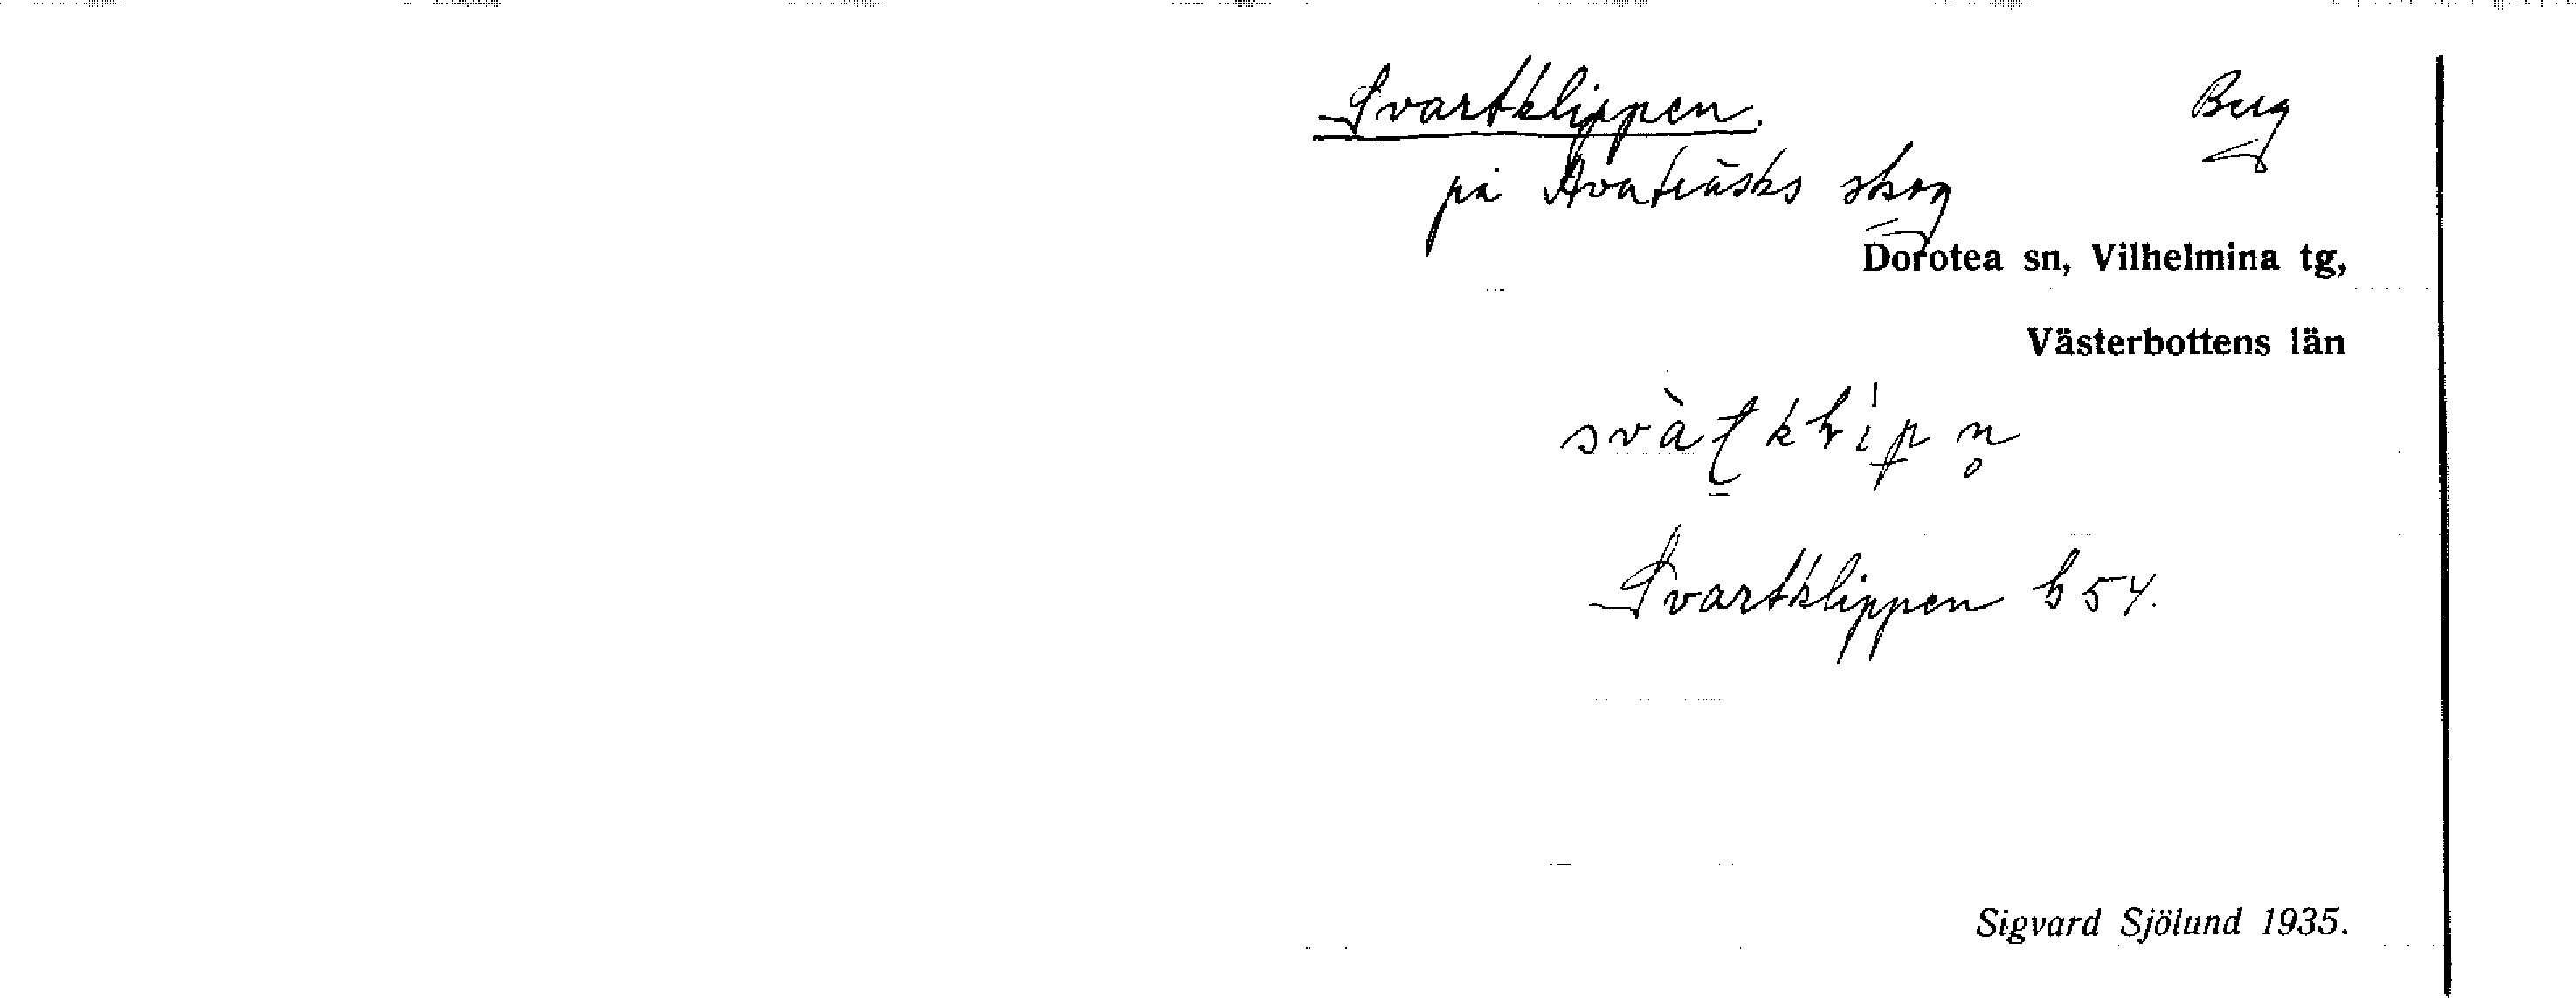 Svartklippen. Berg
på Avaträsks skog
Dorotea sn, Vilhelmina tg,
Västerbottens län
Svartklippen b 54.
Sigvard Sjölund 1935.